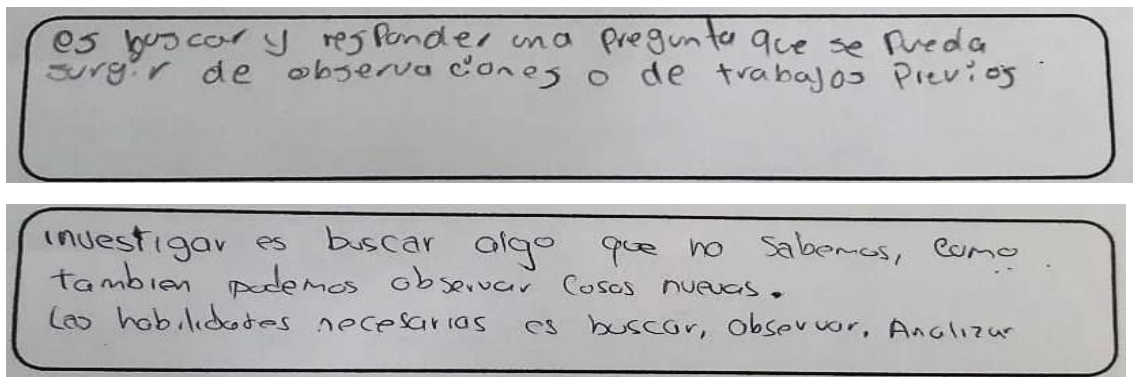 es buscar y responder una pregunta que se pueda
surgir de observaciones o de trabajos previos.
investigar es buscar algo que no sabemos, como
tambien podemos observar cosas nuevas.
Las habilidades necesarias es buscar, observar, Analizar